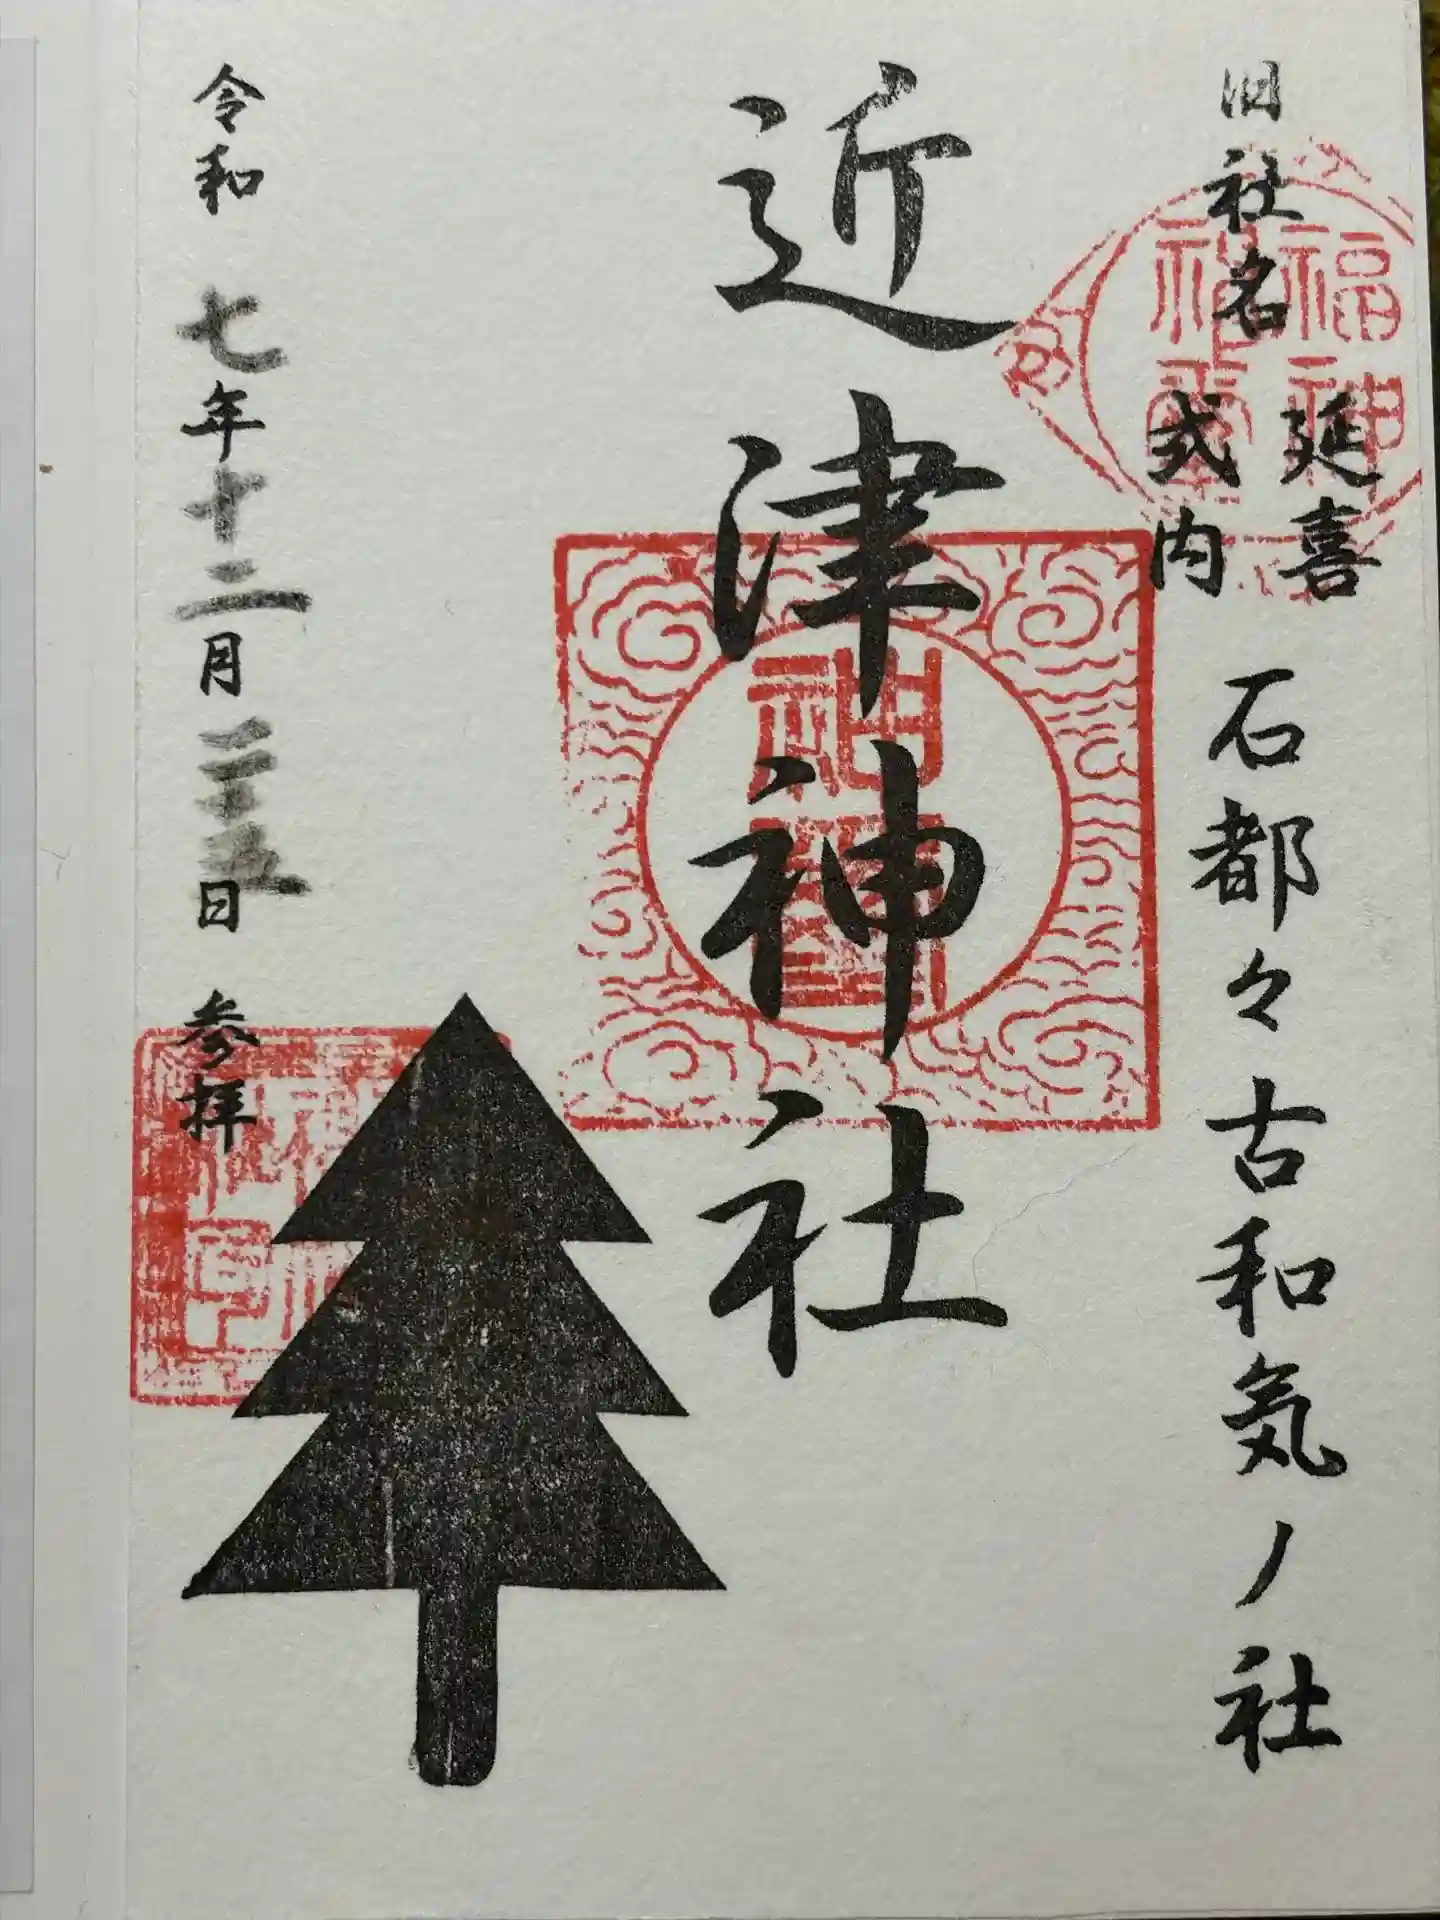 旧社名
延喜
式内
石都々古和気ノ社
近津神社
令和七年十二月二十五日 参拝